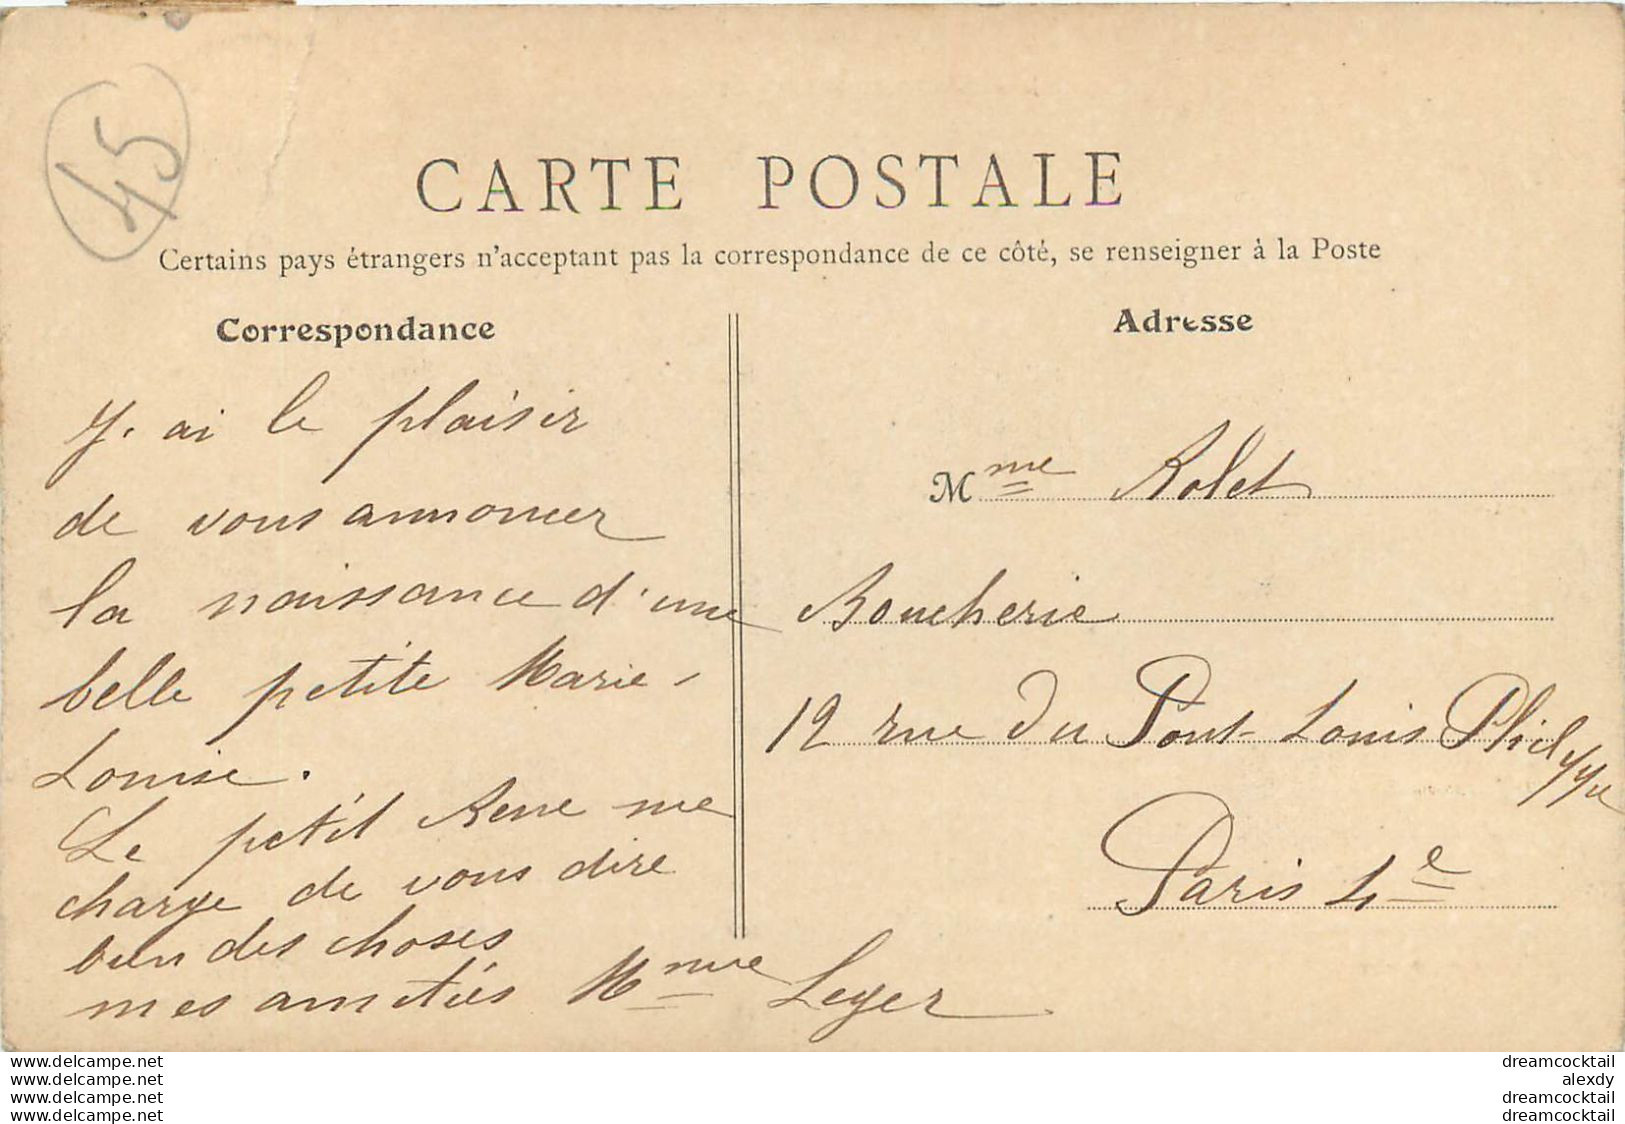 45
CARTE POSTALE
Certains pays étrangers n'acceptant pas la correspondance de ce côté, se renseigner à la Poste
Correspondance
J. ai le plaisir
de vous annoncer
la naissance d'une
belle petite Marie-
Louise.
Le petit Rene me
charge de vous dire
bien des choses
mes amitiés Mme Leger
Adresse
Mme Rolet
Boucherie
12 rue du Pont-Louis Philippe
Paris 4e
www.delcampe.net
www.delcampe.net
www.delcampe.net
www.delcampe.net
dreamcocktail
alexdy
dreamcocktail
dreamcocktail